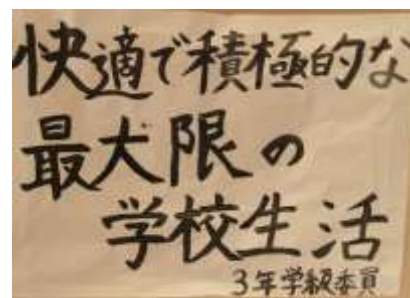 快適で積極的な
最大限の
学校生活
3年学級委員